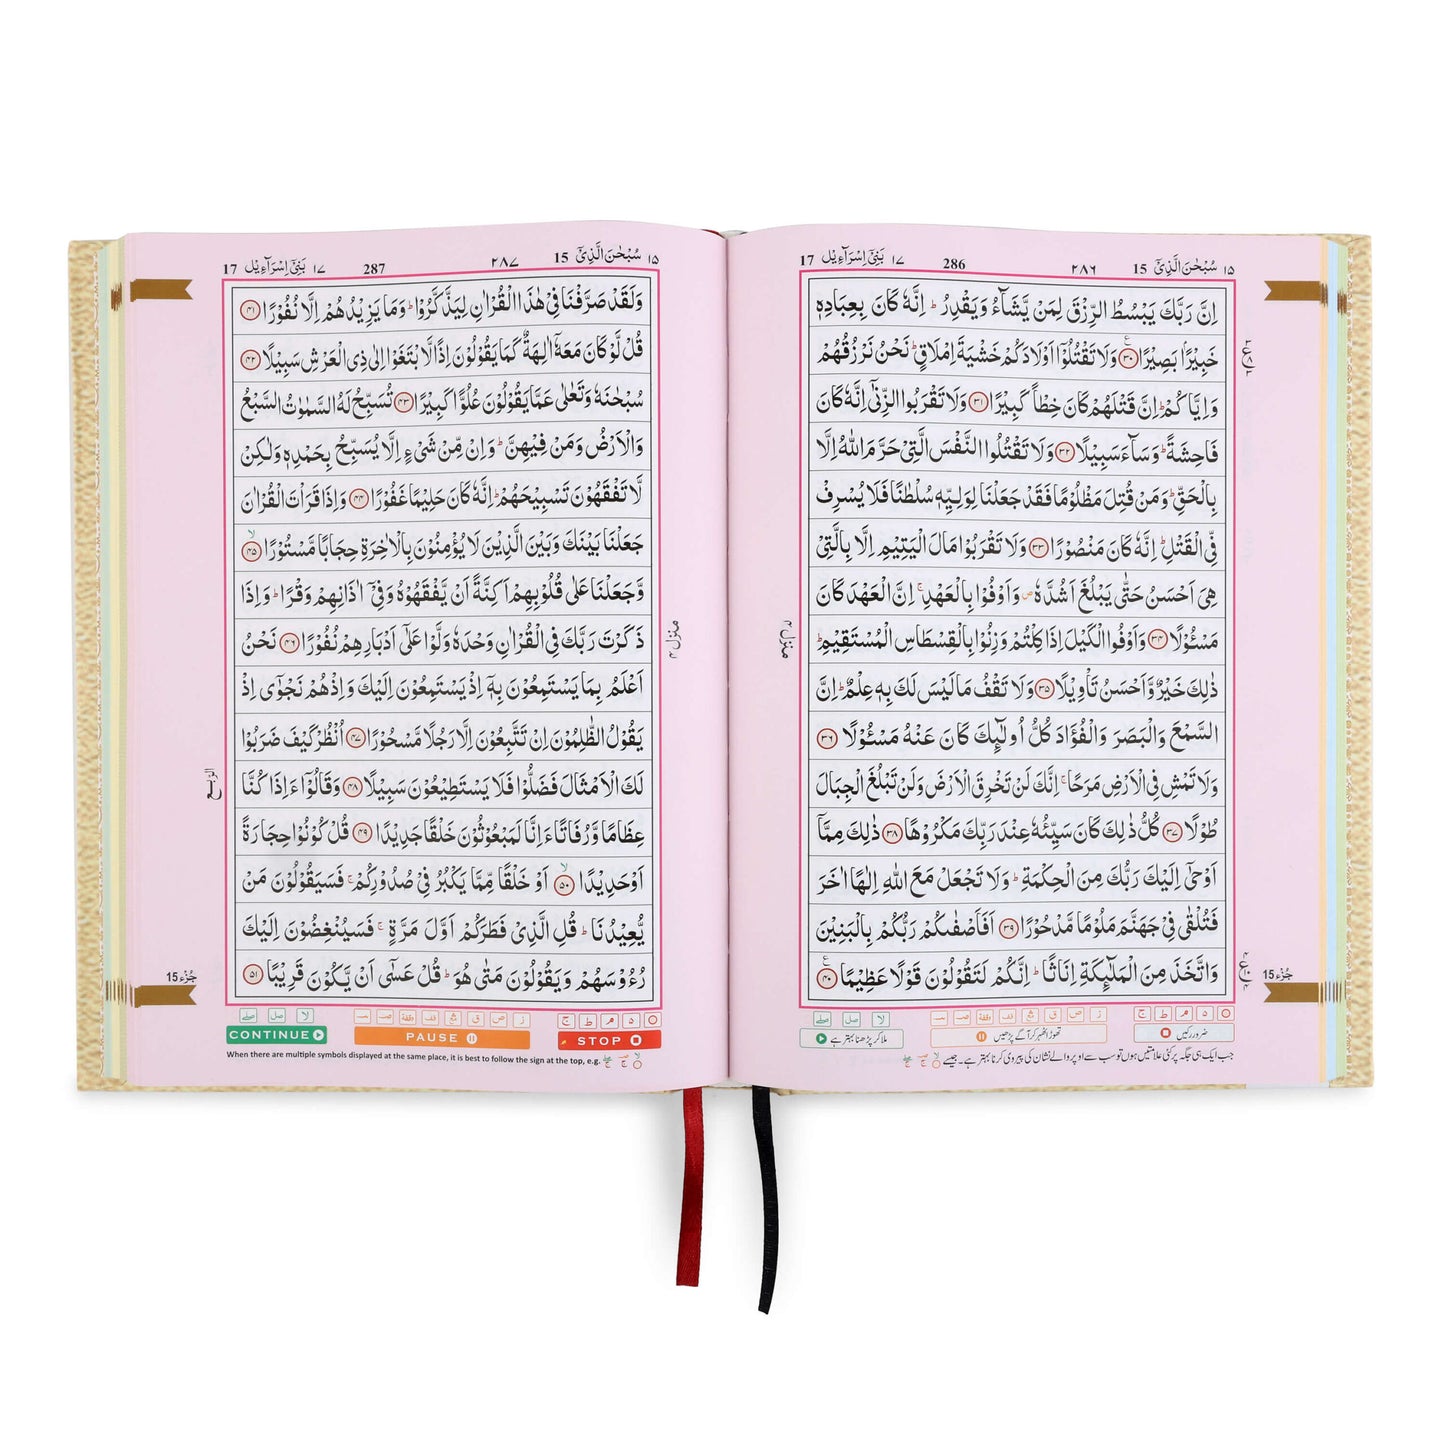 ۱۵ سُبْحٰنَ الَّذِیْۤ 15 ۲۸۶ 286 ۱۷ بَنِیْۤ اِسْرَآءِیْل 17
اِنَّ رَبَّكَ یَبْسُطُ الرِّزْقَ لِمَنْ یَّشَآءُ وَیَقْدِرُ ؕ اِنَّهٗ كَانَ بِعِبَادِهٖ
خَبِیْرًۢا بَصِیْرًا ۳۰ وَلَا تَقْتُلُوْۤا اَوْلَادَكُمْ خَشْیَةَ اِمْلَاقٍ ؕ نَحْنُ نَرْزُقُهُمْ
وَاِیَّاكُمْ ؕ اِنَّ قَتْلَهُمْ كَانَ خِطْاً كَبِیْرًا ۳۱ وَلَا تَقْرَبُوا الزِّنٰۤی اِنَّهٗ كَانَ
فَاحِشَةً ؕ وَسَآءَ سَبِیْلًا ۳۲ وَلَا تَقْتُلُوا النَّفْسَ الَّتِیْ حَرَّمَ اللّٰهُ اِلَّا
بِالْحَقِّ ؕ وَمَنْ قُتِلَ مَظْلُوْمًا فَقَدْ جَعَلْنَا لِوَلِیِّهٖ سُلْطٰنًا فَلَا یُسْرِفْ
فِّی الْقَتْلِ ؕ اِنَّهٗ كَانَ مَنْصُوْرًا ۳۳ وَلَا تَقْرَبُوْا مَالَ الْیَتِیْمِ اِلَّا بِالَّتِیْ
هِیَ اَحْسَنُ حَتّٰی یَبْلُغَ اَشُدَّهٗ ص وَاَوْفُوْا بِالْعَهْدِ ۚ اِنَّ الْعَهْدَ كَانَ
مَسْـُٔوْلًا ۳۴ وَاَوْفُوا الْكَیْلَ اِذَا كِلْتُمْ وَزِنُوْا بِالْقِسْطَاسِ الْمُسْتَقِیْمِ ؕ
ذٰلِكَ خَیْرٌ وَّاَحْسَنُ تَاْوِیْلًا ۳۵ وَلَا تَقْفُ مَا لَیْسَ لَكَ بِهٖ عِلْمٌ ؕ اِنَّ
السَّمْعَ وَالْبَصَرَ وَالْفُؤَادَ كُلُّ اُولٰٓئِكَ كَانَ عَنْهُ مَسْـُٔوْلًا ۳۶
وَلَا تَمْشِ فِی الْاَرْضِ مَرَحًا ۚ اِنَّكَ لَنْ تَخْرِقَ الْاَرْضَ وَلَنْ تَبْلُغَ الْجِبَالَ
طُوْلًا ۳۷ كُلُّ ذٰلِكَ كَانَ سَیِّئُهٗ عِنْدَ رَبِّكَ مَكْرُوْهًا ۳۸ ذٰلِكَ مِمَّاۤ
اَوْحٰۤی اِلَیْكَ رَبُّكَ مِنَ الْحِكْمَةِ ؕ وَلَا تَجْعَلْ مَعَ اللّٰهِ اِلٰهًا اٰخَرَ
فَتُلْقٰی فِیْ جَهَنَّمَ مَلُوْمًا مَّدْحُوْرًا ۳۹ اَفَاَصْفٰىكُمْ رَبُّكُمْ بِالْبَنِیْنَ
وَاتَّخَذَ مِنَ الْمَلٰٓئِكَةِ اِنَاثًا ؕ اِنَّكُمْ لَتَقُوْلُوْنَ قَوْلًا عَظِیْمًا ۴۰
منزل ۴
جُزْء 15
○ م ط ج
ضرور رکیں تھوڑا ٹھہر کر آگے پڑھیں ملا کر پڑھنا بہتر ہے
جب ایک ہی جگہ پر کئی علامتیں ہوں تو سب سے اوپر والے نشان کی پیروی کرنا بہتر ہے۔ جیسے
۱۵ سُبْحٰنَ الَّذِیْۤ 15 ۲۸۷ 287 ۱۷ بَنِیْۤ اِسْرَآءِیْل 17
وَلَقَدْ صَرَّفْنَا فِیْ هٰذَا الْقُرْاٰنِ لِیَذَّكَّرُوْا ؕ وَمَا یَزِیْدُهُمْ اِلَّا نُفُوْرًا ۴۱
قُلْ لَّوْ كَانَ مَعَهٗۤ اٰلِهَةٌ كَمَا یَقُوْلُوْنَ اِذًا لَّابْتَغَوْا اِلٰی ذِی الْعَرْشِ سَبِیْلًا ۴۲
سُبْحٰنَهٗ وَتَعٰلٰی عَمَّا یَقُوْلُوْنَ عُلُوًّا كَبِیْرًا ۴۳ تُسَبِّحُ لَهُ السَّمٰوٰتُ السَّبْعُ
وَالْاَرْضُ وَمَنْ فِیْهِنَّ ؕ وَاِنْ مِّنْ شَیْءٍ اِلَّا یُسَبِّحُ بِحَمْدِهٖ وَلٰكِنْ
لَّا تَفْقَهُوْنَ تَسْبِیْحَهُمْ ؕ اِنَّهٗ كَانَ حَلِیْمًا غَفُوْرًا ۴۴ وَاِذَا قَرَاْتَ الْقُرْاٰنَ
جَعَلْنَا بَیْنَكَ وَبَیْنَ الَّذِیْنَ لَا یُؤْمِنُوْنَ بِالْاٰخِرَةِ حِجَابًا مَّسْتُوْرًا ۴۵
وَّجَعَلْنَا عَلٰی قُلُوْبِهِمْ اَكِنَّةً اَنْ یَّفْقَهُوْهُ وَفِیْۤ اٰذَانِهِمْ وَقْرًا ؕ وَاِذَا
ذَكَرْتَ رَبَّكَ فِی الْقُرْاٰنِ وَحْدَهٗ وَلَّوْا عَلٰۤی اَدْبَارِهِمْ نُفُوْرًا ۴۶ نَحْنُ
اَعْلَمُ بِمَا یَسْتَمِعُوْنَ بِهٖۤ اِذْ یَسْتَمِعُوْنَ اِلَیْكَ وَاِذْ هُمْ نَجْوٰۤی اِذْ
یَقُوْلُ الظّٰلِمُوْنَ اِنْ تَتَّبِعُوْنَ اِلَّا رَجُلًا مَّسْحُوْرًا ۴۷ اُنْظُرْ كَیْفَ ضَرَبُوْا
لَكَ الْاَمْثَالَ فَضَلُّوْا فَلَا یَسْتَطِیْعُوْنَ سَبِیْلًا ۴۸ وَقَالُوْۤا ءَاِذَا كُنَّا
عِظَامًا وَّرُفَاتًا ءَاِنَّا لَمَبْعُوْثُوْنَ خَلْقًا جَدِیْدًا ۴۹ قُلْ كُوْنُوْا حِجَارَةً
اَوْ حَدِیْدًا ۵۰ اَوْ خَلْقًا مِّمَّا یَكْبُرُ فِیْ صُدُوْرِكُمْ ۚ فَسَیَقُوْلُوْنَ مَنْ
یُّعِیْدُنَا ؕ قُلِ الَّذِیْ فَطَرَكُمْ اَوَّلَ مَرَّةٍ ۚ فَسَیُنْغِضُوْنَ اِلَیْكَ
رُءُوْسَهُمْ وَیَقُوْلُوْنَ مَتٰی هُوَ ؕ قُلْ عَسٰۤی اَنْ یَّكُوْنَ قَرِیْبًا ۵۱
منزل ۴
الربع
جُزْء 15
CONTINUE PAUSE STOP
When there are multiple symbols displayed at the same place, it is best to follow the sign at the top, e.g.